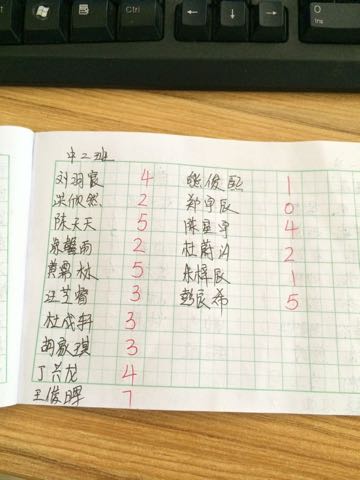 中二班
刘羽宸 4 张俊熙 1
洪欣然 2 郑宇辰 0
陈天天 5 陈星宇 4
馨雨 2 杜蔚汐 2
黄霖林 5 朱梓辰 1
汪芷睿 3 彭辰希 5
杜成轩 3
胡歆琪 3
丁兴龙 4
王俊晖 7
Ins
0